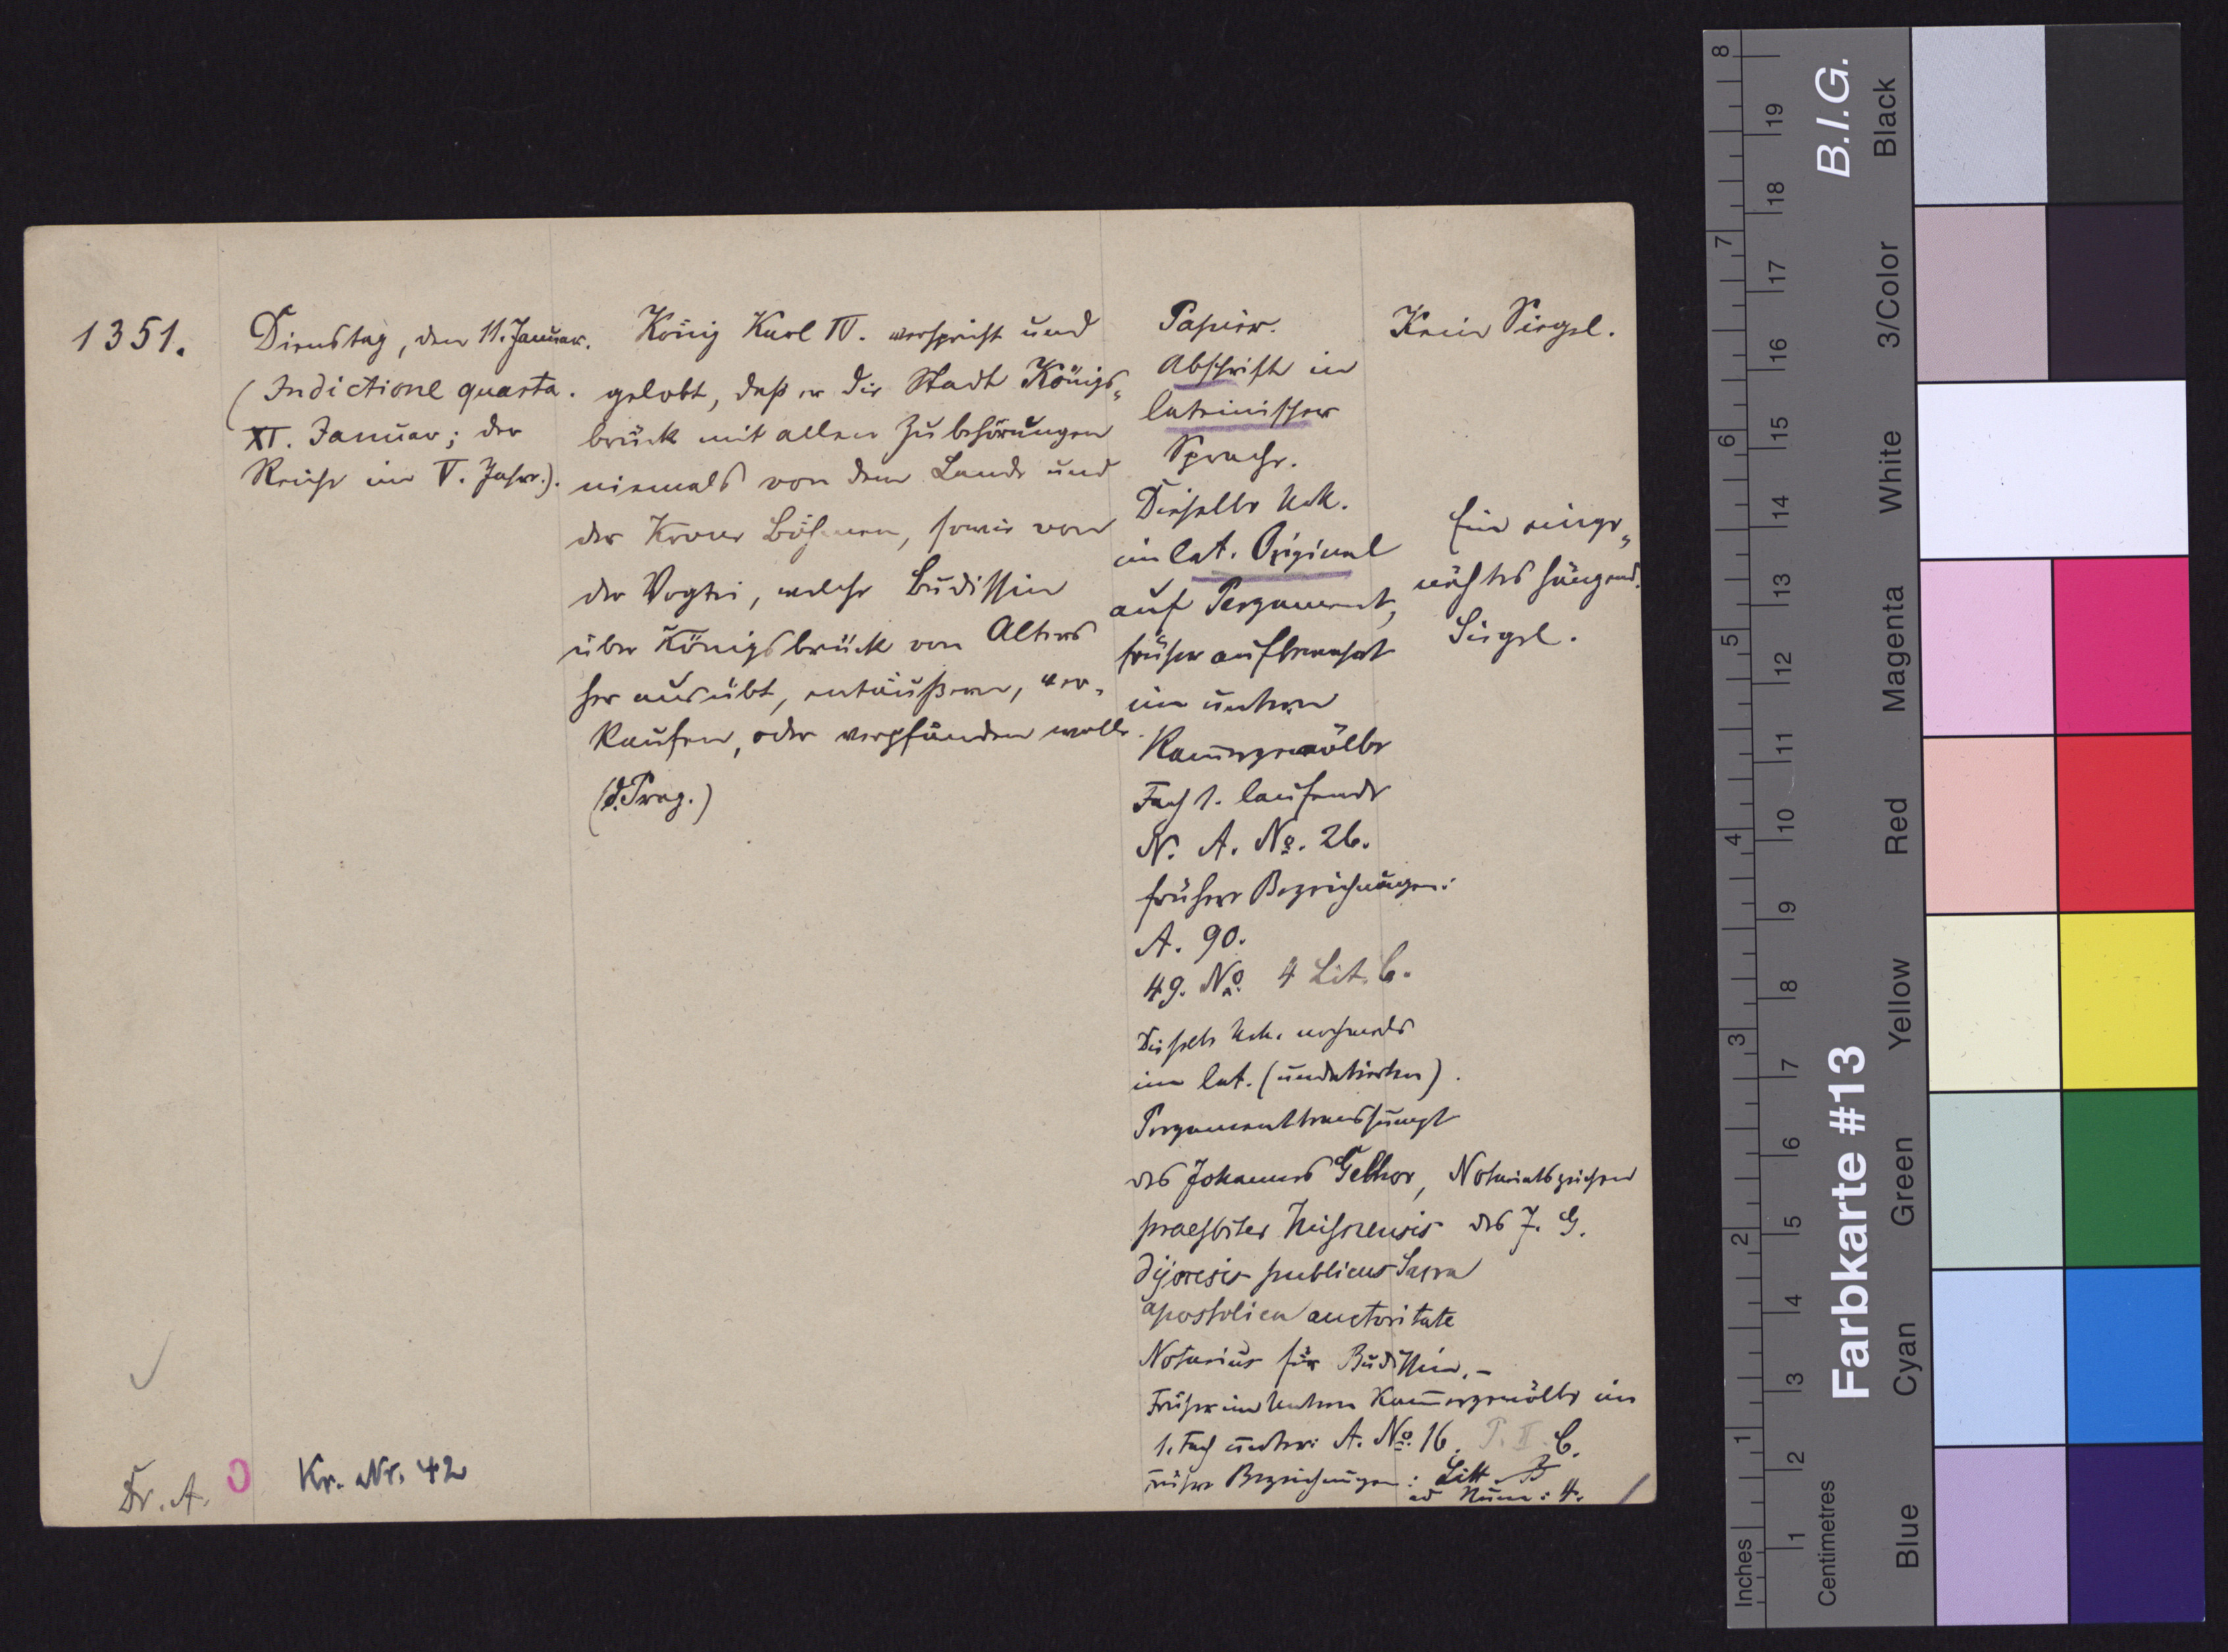 1351.
Dienstag, den 11. Januar.
(Indictione quarta.
XI. Januar; der
Reiche im V. Jahre.).
König Karl IV. verspricht und
gelobt, daß er die Stadt Königs„
brück mit allen Zubehörungen
niemals von dem Lande und
der Krone Böhmen, sowie von
der Vogtei, welche Budissin
über Königsbrück von Alters
her ausübt, entäußern, ver-
kaufen, oder verpfänden wolle.
(d. Prag.)
Papier.
Abschrift in
lateinischer
Sprache.
Dieselbe Urk.
im lat. Original
auf Pergament,
früher aufbewahrt
im untern
Kam̄ergewölbe
Fach 1. laufende
N. A. No. 26.
frühere Bezeichnungen:
A. 90.
49. No. 4 Lit. C.
Dieselbe Urk. nochmals
im lat. (undatierten).
Pergamenttranssumpt
des Johannes Gelhor,
praesbiter Misnensis
dijocesis publicus Sacra
apostolica auctoritate
Notarius für Budissin.-
Früher im Untern Kam̄ergewölbe im
1. Fach unter: A. No. 16. P. II. C.
frühere Bezeichnungen: Litt. B
ad Num: 4.
Kein Siegel.
Ein einge„
nähtes hängend.
Siegel.
Notariatszeichen
des J. G.
Dr. A.
Kr. Nr. 42
Inches
1 2 3 4 5 6 7 8
Centimetres
1 2 3 4 5 6 7 8 9 10 11 12 13 14 15 16 17 18 19
Farbkarte #13
B.I.G.
Blue
Cyan
Green
Yellow
Red
Magenta
White
3/Color
Black